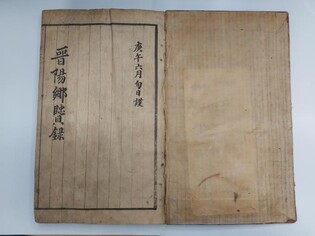 庚午六月旬日謹
晋陽鄉賢錄